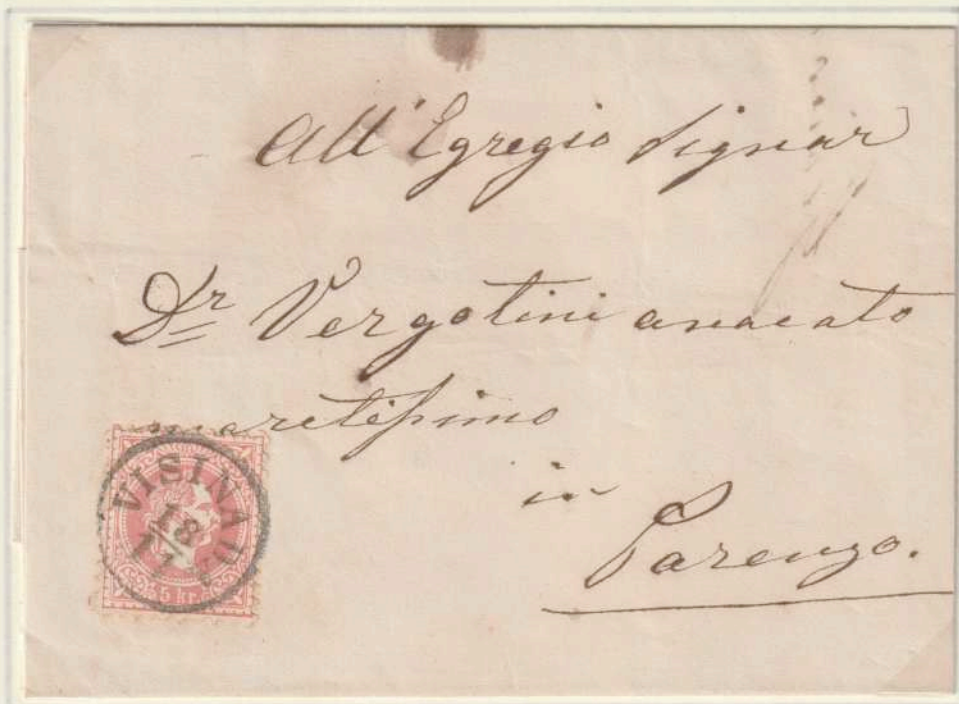 All' Egregio Signor
Dr Vergotini avvocato
meretissimo
in
Parenzo.
VISINADA
18
11
5 kr.